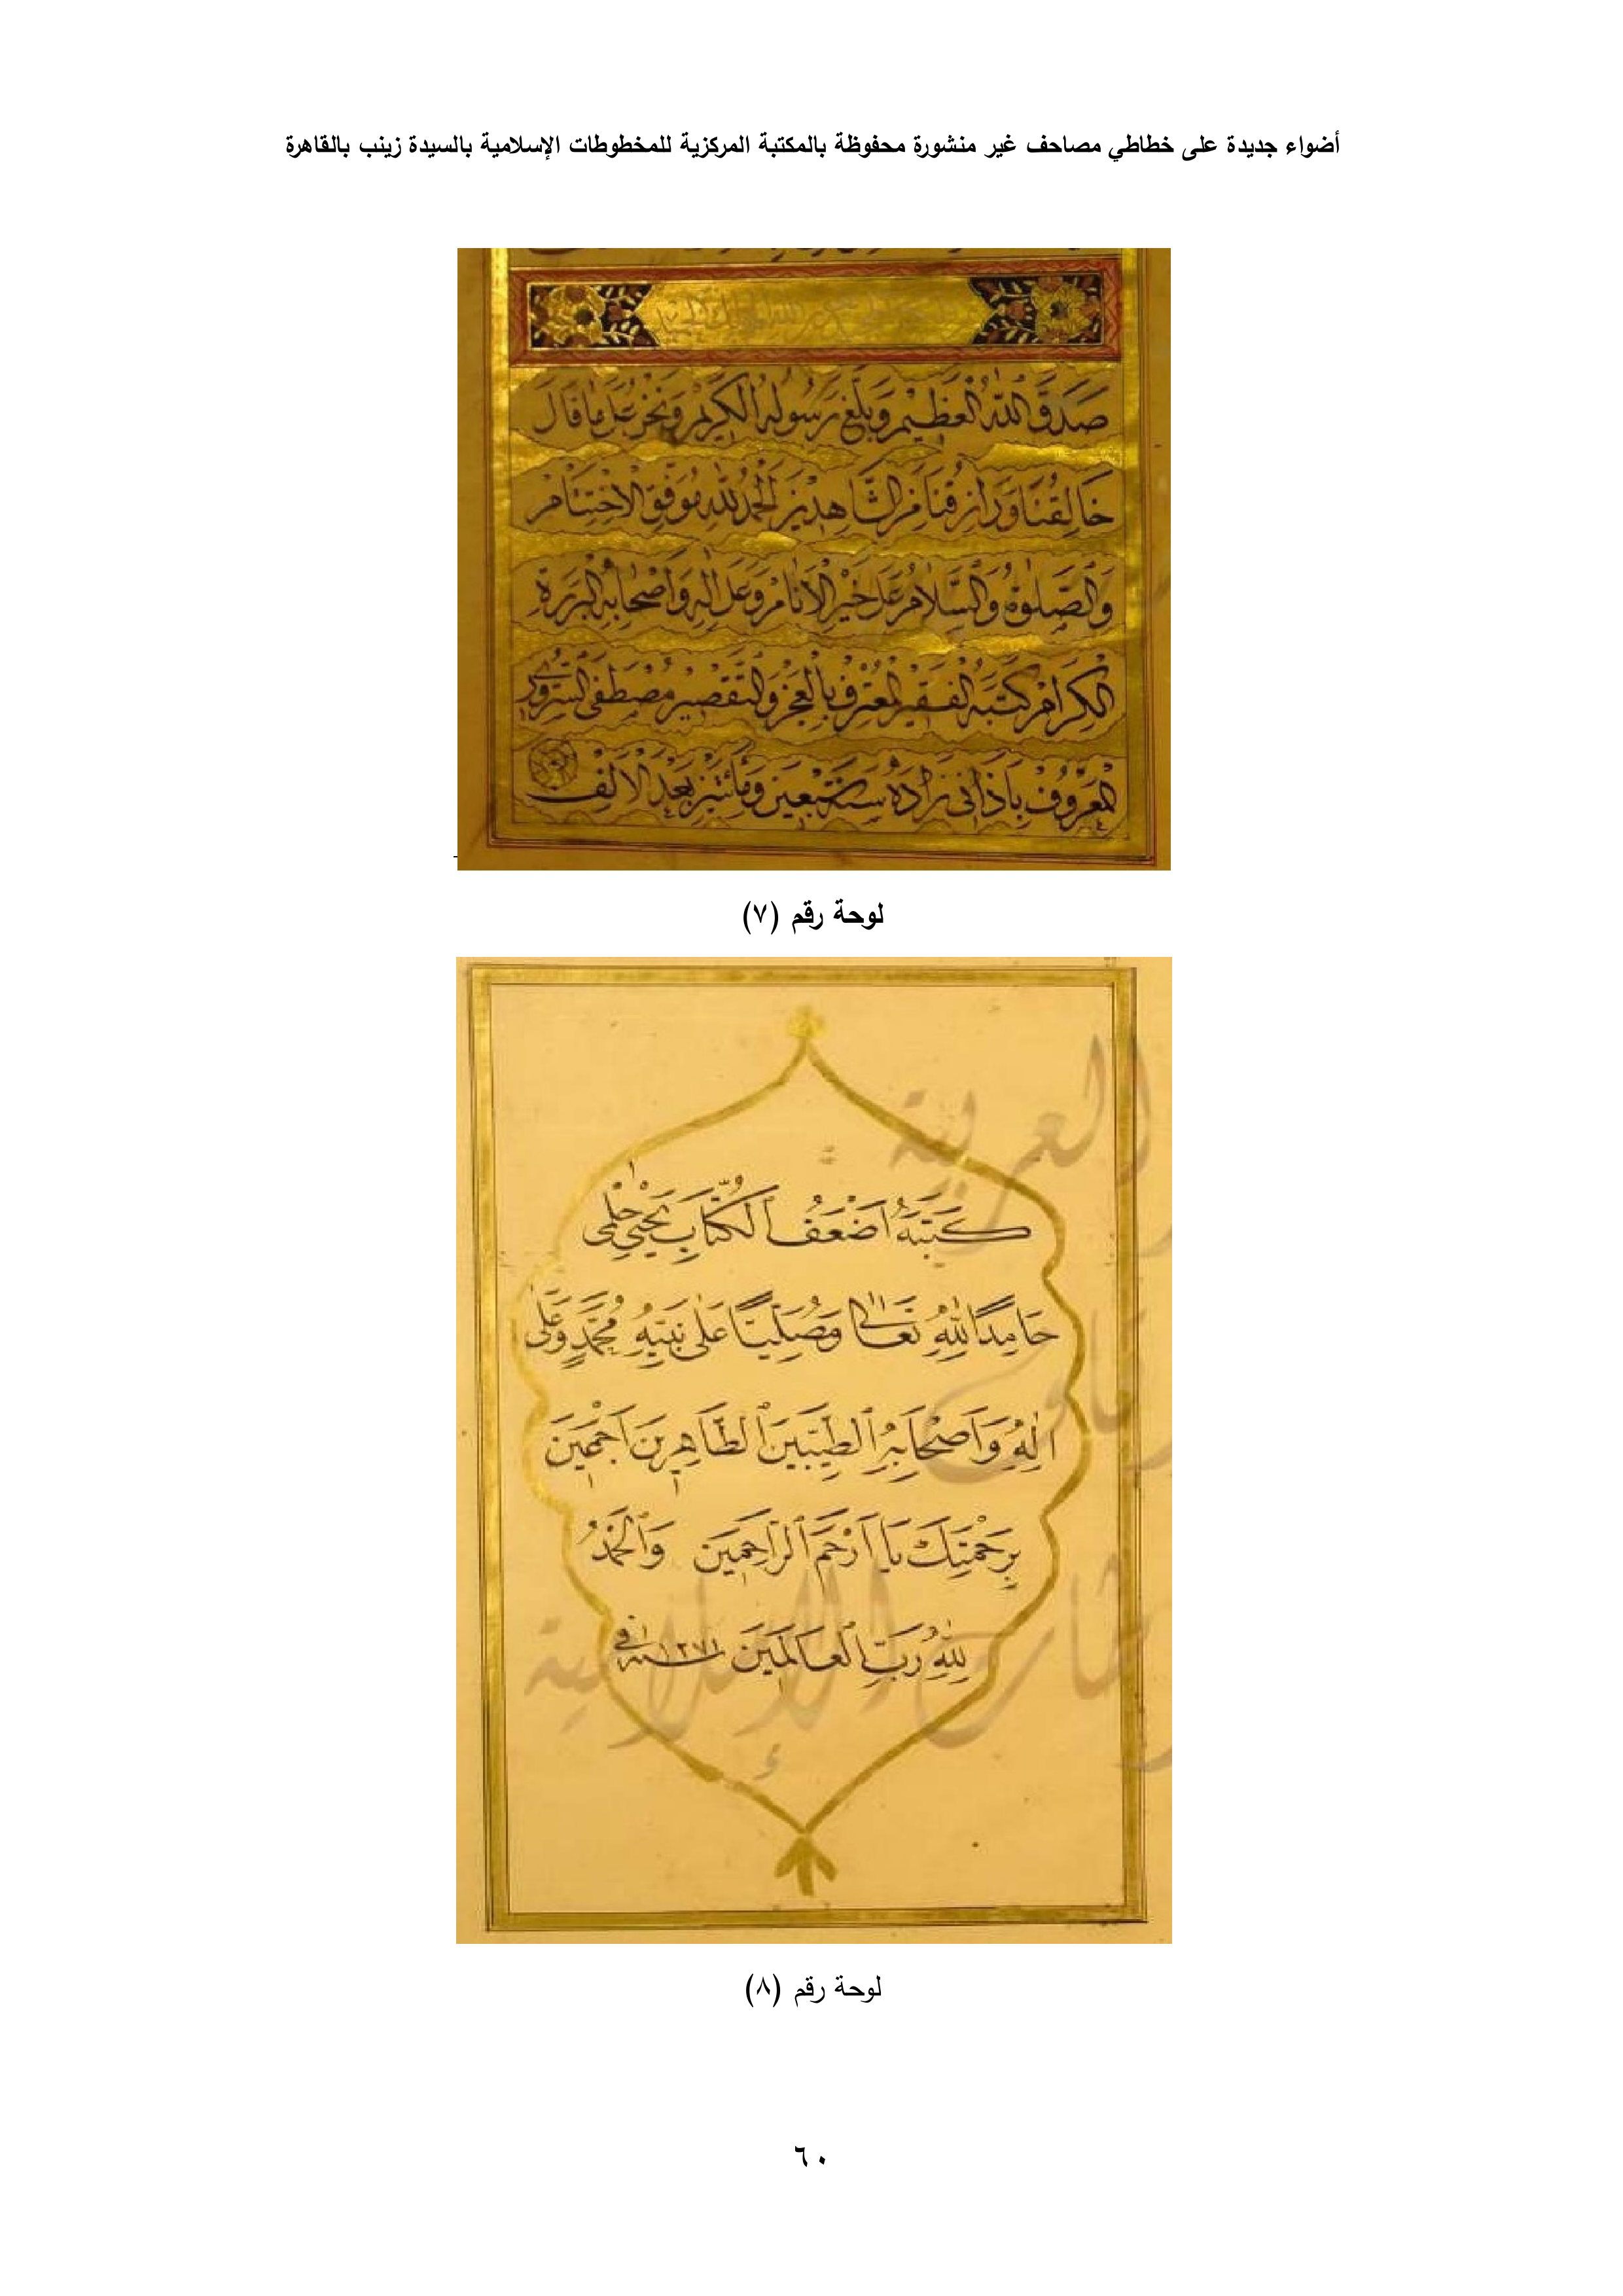 أضواء جديدة على خطاطي مصاحف غير منشورة محفوظة بالمكتبة المركزية للمخطوطات الإسلامية بالسيدة زينب بالقاهرة
صَدَقَ اللهُ الْعَظِيمُ وَبَلَّغَ رَسُولُهُ الْكَرِيمُ وَنَحْنُ عَلَى مَا قَالَ
خَالِقُنَا وَرَازِقُنَا مِنَ الشَّاهِدِينَ الْحَمْدُ لِلّٰهِ مُوَفِّقِ الْاِخْتِتَامْ
وَالصَّلٰوةُ وَالسَّلَامُ عَلَى خَيْرِ الْاَنَامْ وَعَلَى اٰلِهِ وَاَصْحَابِهِ الْبَرَرَةِ
الْكِرَامْ كَتَبَهُ الْفَقِيرُ الْمُعْتَرِفُ بِالْعَجْزِ وَالتَّقْصِيرِ مُصْطَفَى السروري
الْمَعْرُوفْ بِاَذَانِى زَادَهْ سَنَةَ سَبْعِينَ وَمِائَتَيْنِ بَعْدَ الْاَلِفْ
لوحة رقم (٧)
العربية
كَتَبَهُ اَضْعَفُ الْكُتَّابِ يَحْيٰى حِلْمِى
حَامِدًا لِلّٰهِ تَعَالٰى وَمُصَلِّيًا عَلٰى نَبِيِّهِ مُحَمَّدٍ وَعَلٰى
اٰلِهِ وَاَصْحَابِهِ الطَّيِّبِينَ الطَّاهِرِينَ اَجْمَعِينَ
بِرَحْمَتِكَ يَا اَرْحَمَ الرَّاحِمِينَ وَالْحَمْدُ
لِلّٰهِ رَبِّ الْعَالَمِينَ فى سنة ١٢٧١
الإسلامية
لوحة رقم (٨)
٦٠